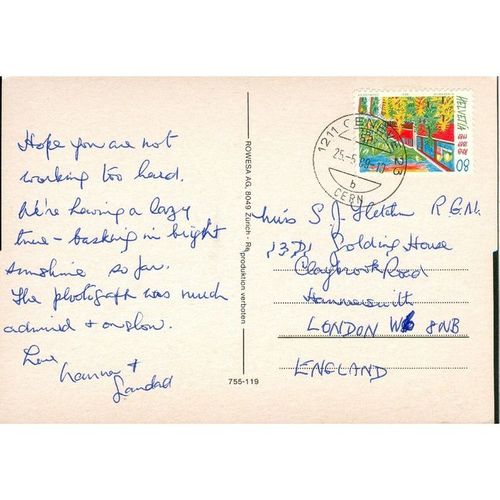 Hope you are not
working too hard.
We're having a lazy
time - basking in bright
sunshine so far.
The photograph was much
admired + on show.
Love
+
Grandad
ROWESA AG, 8049 Zürich - Reproduktion verboten
755-119
HELVETIA
80
1211 GENÈVE 23
25.-5.89-10
b
CERN
Miss S. J. Fletcher R.G.N.
Golding House
Claybrook Road
Hammersmith
LONDON W6 8NB
ENGLAND